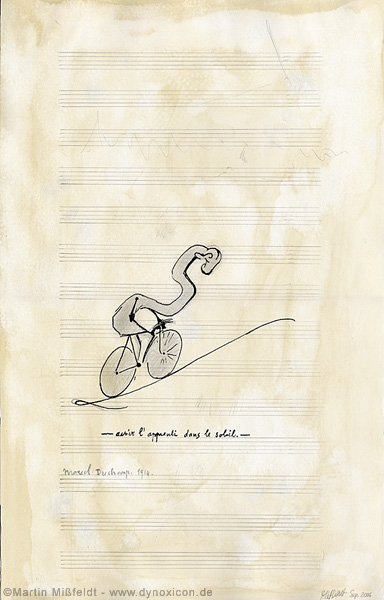 — avoir l'apprenti dans le soleil. —
Marcel Duchamp. 1914.
Sep. 2006
©Martin Mißfeldt - www.dynoxicon.de